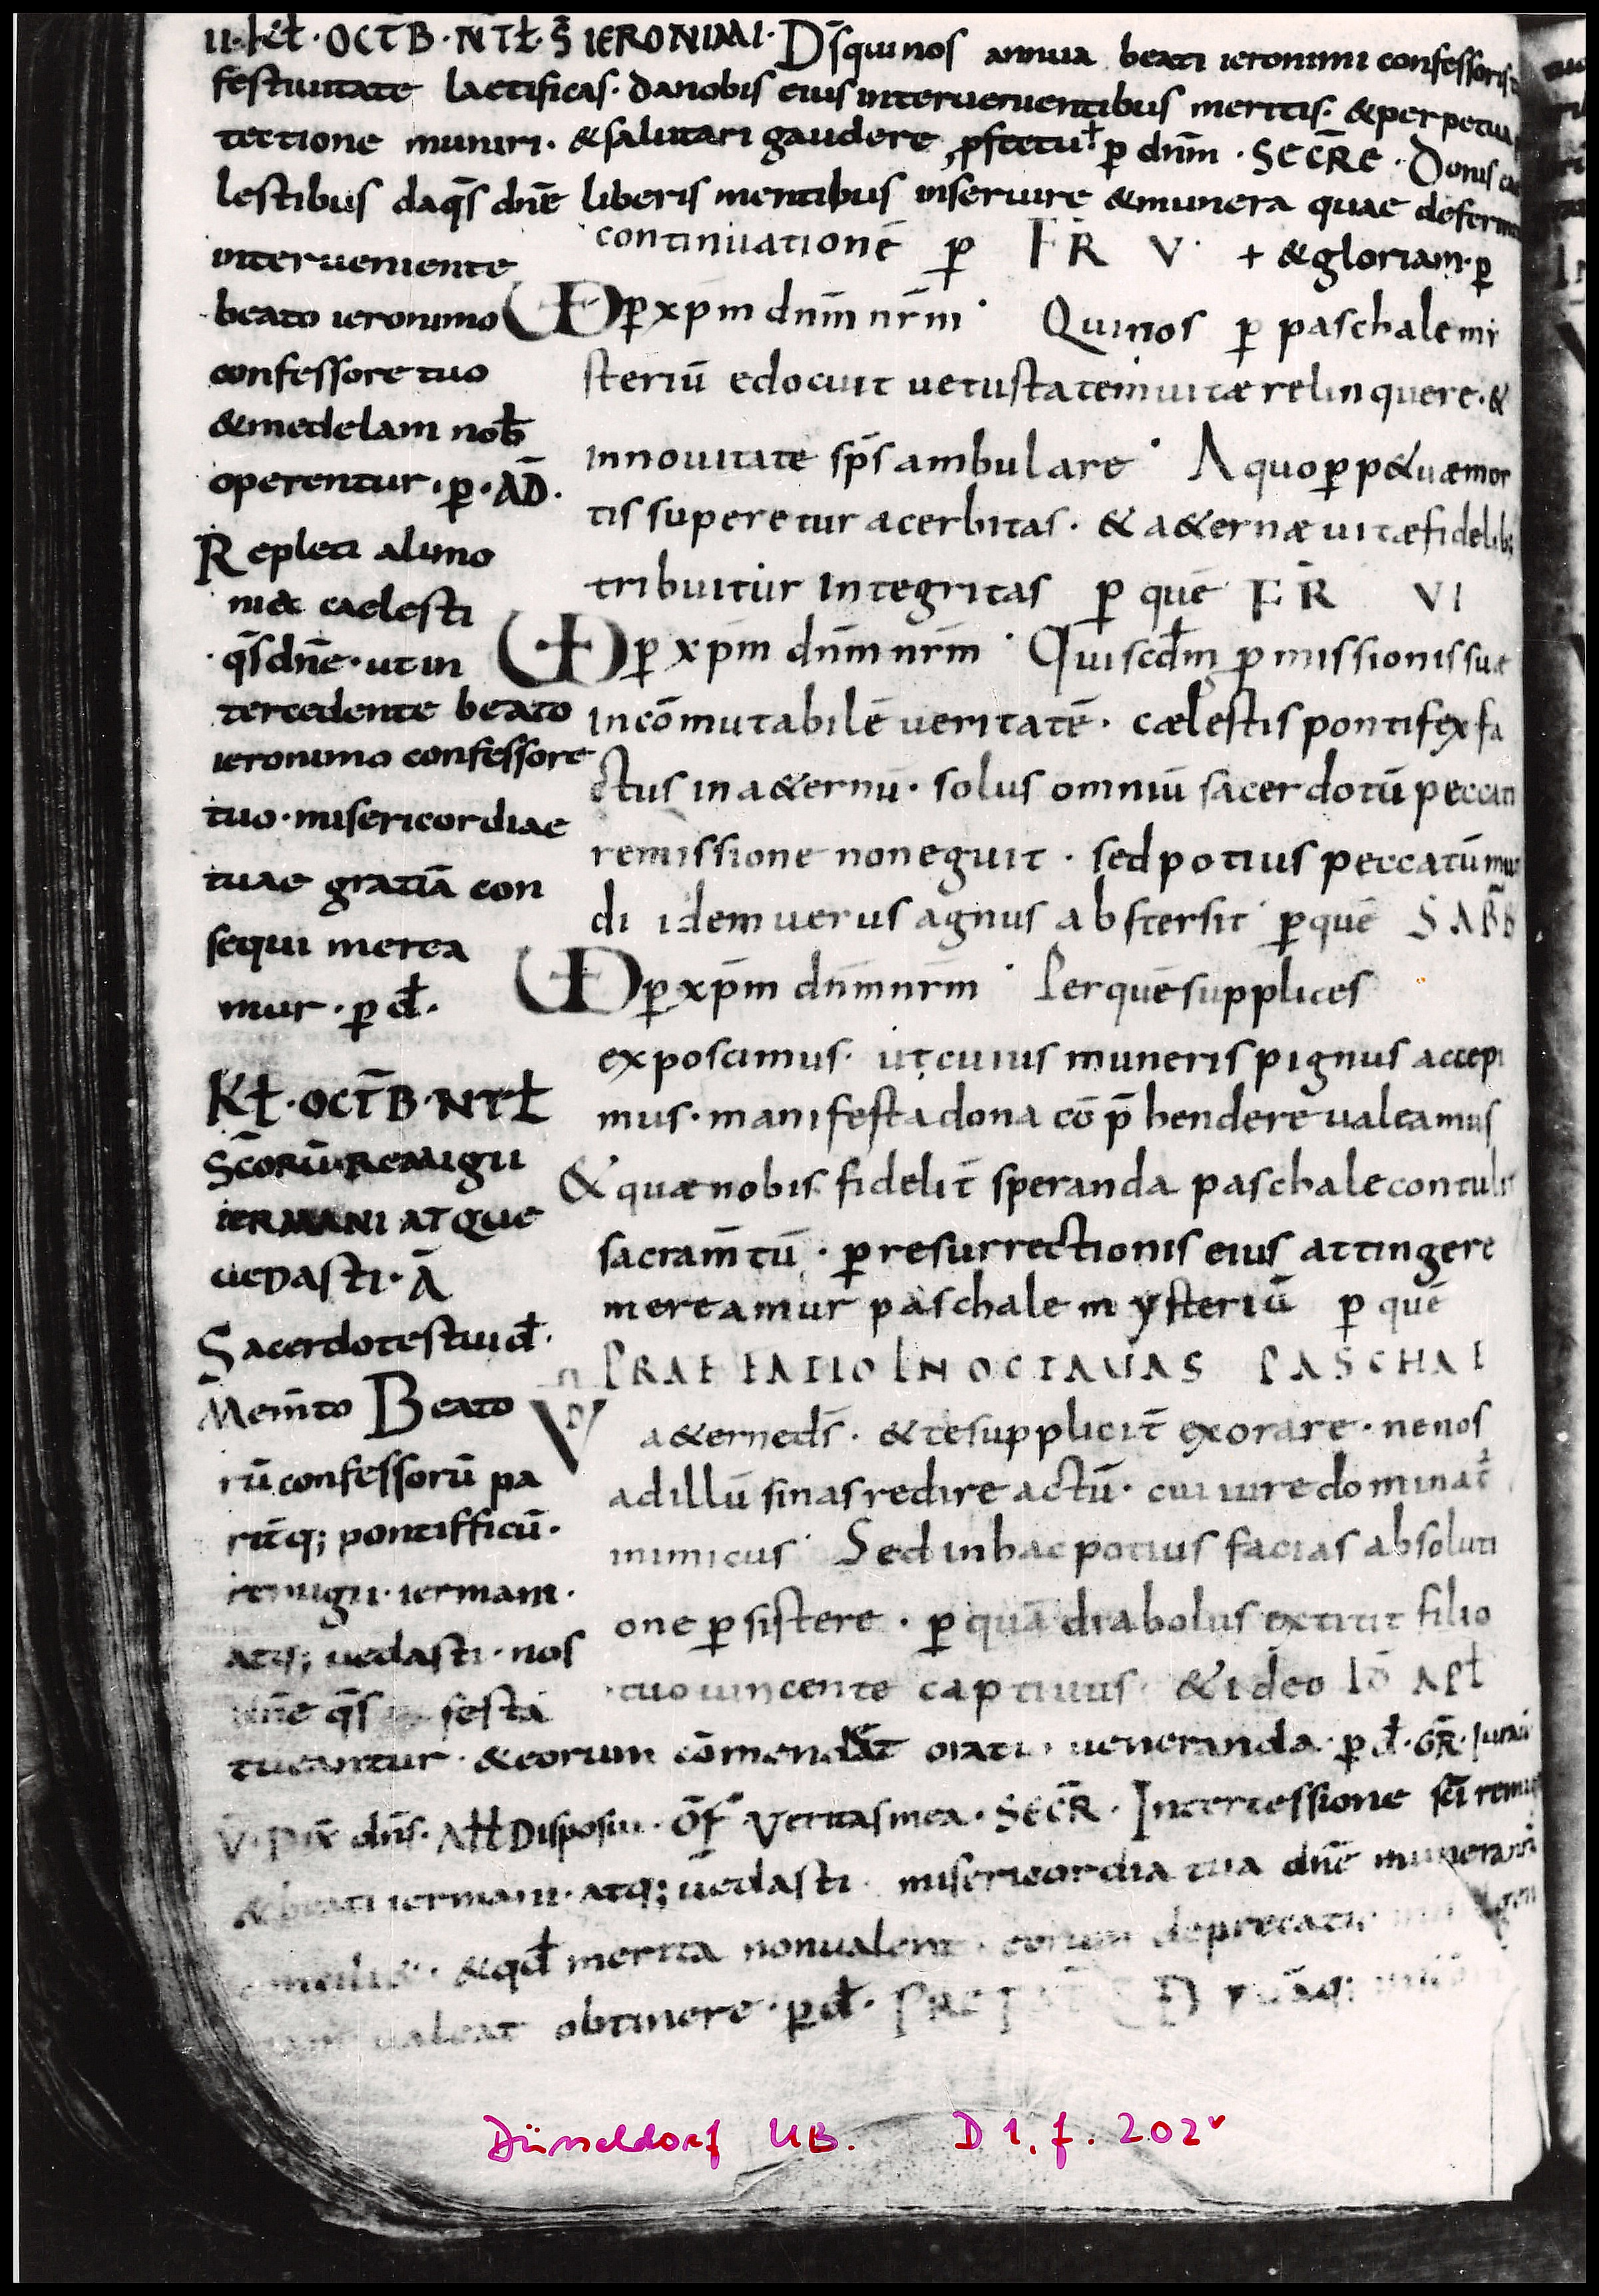 II · kł · OCT̄B · NTł · S̄ IERONIMI · D̄s qui nos annua beati ieronimi confessoris
festiuitate laetificas · da nobis eius interueruentibus meritis · & perpetua
tectione muniri · & salutari gaudere, ꝓfectu ⁺ ꝑ dnm̄ · SECRE · Donis cae
lestibus da qs̄ dnē liberis mentibus inseruire & munera quae deferim
interueniente
beato ieronimo
confessore tuo
& medelam nob̄
operentur · ꝑ · AD̄ ·
Repleti alimo
nia caelesti
qs̄ dnē · ut in
tercedente beato
ieronimo confessore
tuo · misericordiae
tuae gratiā con
sequi merea
mur · ꝑ đ ·
Kł · OCT̄B · NTł
S̄CORŪ REMIGII
IERMANI ATQUE
UEDASTI · Ā
Sacerdotes tui đ ·
Mem̄to Beato
rū confessorū pa
rit̄q; pontifficū ·
remigii · iermani ·
atq; uedasti · nos
dnē qs̄ festa
continuationē ꝑ FR̄ V · + & gloriam · ꝑ
VD ꝑ xp̄m dnm̄ nrm̄ · Qui nos ꝑ paschale mi
steriū edocuit uetustatem uitæ relinquere · &
in nouitate sp̄s ambulare · A quo ꝑp&uæ mor
tis superetur acerbitas · & a&ernæ uitæ fidelib;
tribuitur integritas ꝑ quē FR̄ VI
VD ꝑ xp̄m dnm̄ nrm̄ · Qui scđm ꝓmissionis suæ
incōmutabilē ueritatē · cælestis pontifex fa
ctus in a&ernū · solus omniū sacerdotū peccati
remissione non eguit · sed potius peccatū mun
di idem uerus agnus abstersit · ꝑ quē SAB̄B
VD ꝑ xp̄m dnm̄ nrm̄ · Per quē supplices
exposcimus · ut cuius muneris pignus accepi
mus · manifesta dona cōp̄hendere ualeamus
& quæ nobis fidelit̄ speranda paschale contulit
sacram̄tū · ꝑ resurrectionis eius attingere
mereamur paschale mysteriū ꝑ quē
PRAEFATIO IN OCTAUAS PASCHAE
VD a&erne ds̄ · & te supplicit̄ exorare · ne nos
ad illū sinas redire actū · cui iure dominat̄
inimicus · Sed in hac potius facias absoluti
one ꝑsistere · ꝑ quā diabolus extitit filio
tuo uincente captiuus · & ideo IŌ APł
tueantur · & eorum cōmendat ueneranda · ꝑ đ · GR̄ · Iurauit
V̄ · Dix̄ dn̄s · Ałł Disposui · OF̄ Veritas mea · SECR̄ · Intercessione sc̄i remigii
& beati iermani · atq; uedasti · misericordia tua dnē
& qđ merita non ualent · eorum deprecatio
ualeat obtinere · ꝑ đ ·
Düsseldorf UB. D 1, f. 202ᵛ